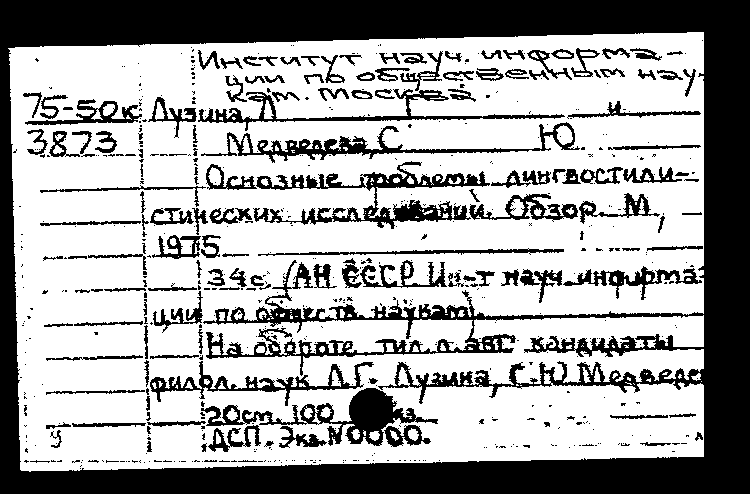 Институт науч. информа-
ции по общественным нау-
кам. Москва.
75-50к Лузина, Л Г и
3873 Медведева, С Ю
Основные проблемы лингвостили-
стических исследований. Обзор. М,
1975
34с. (АН СССР Ин-т науч. информа-
ции по обществ. наукам).
На обороте тит. л. авт. кандидаты
филол. наук Л.Г. Лузина, С.Ю Медведе
20см. 100 кз.
У ДСП. Экз. N0000.